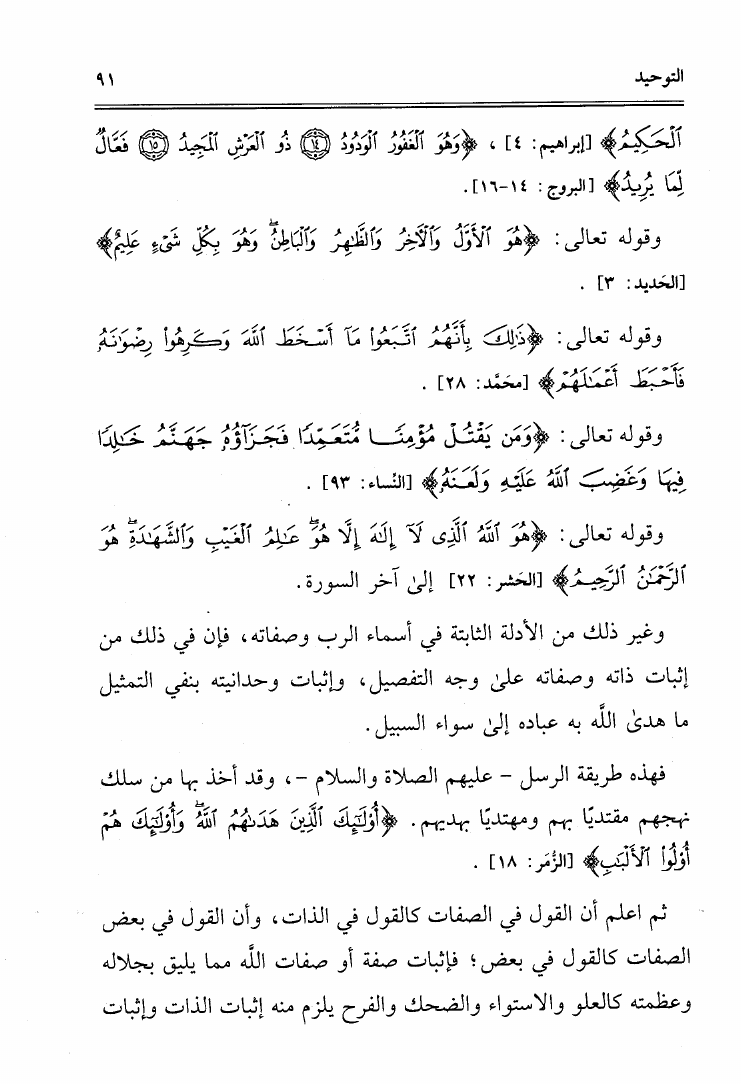 التوحيد ٩١
ٱلْحَكِيمُ﴾ [إبراهيم: ٤] ، ﴿وَهُوَ ٱلْغَفُورُ ٱلْوَدُودُ ۝١٤ ذُو ٱلْعَرْشِ ٱلْمَجِيدُ ۝١٥ فَعَّالٌ
لِّمَا يُرِيدُ﴾ [البروج: ١٤-١٦].
وقوله تعالى: ﴿هُوَ ٱلْأَوَّلُ وَٱلْأَخِرُ وَٱلظَّٰهِرُ وَٱلْبَاطِنُ ۖ وَهُوَ بِكُلِّ شَىْءٍ عَلِيمٌ﴾
[الحَديد: ٣] .
وقوله تعالى: ﴿ذَٰلِكَ بِأَنَّهُمُ ٱتَّبَعُوا۟ مَآ أَسْخَطَ ٱللَّهَ وَكَرِهُوا۟ رِضْوَٰنَهُۥ
فَأَحْبَطَ أَعْمَٰلَهُمْ﴾ [محَمَّد: ٢٨] .
وقوله تعالى: ﴿وَمَن يَقْتُلْ مُؤْمِنًا مُّتَعَمِّدًا فَجَزَآؤُهُۥ جَهَنَّمُ خَٰلِدًا
فِيهَا وَغَضِبَ ٱللَّهُ عَلَيْهِ وَلَعَنَهُۥ﴾ [النِّساء: ٩٣] .
وقوله تعالى: ﴿هُوَ ٱللَّهُ ٱلَّذِى لَآ إِلَٰهَ إِلَّا هُوَ ۖ عَٰلِمُ ٱلْغَيْبِ وَٱلشَّهَٰدَةِ ۖ هُوَ
ٱلرَّحْمَٰنُ ٱلرَّحِيمُ﴾ [الحَشر: ٢٢] إلىٰ آخر السورة.
وغير ذلك من الأدلة الثابتة في أسماء الرب وصفاته، فإن في ذلك من
إثبات ذاته وصفاته علىٰ وجه التفصيل، وإثبات وحدانيته بنفي التمثيل
ما هدىٰ اللَّه به عباده إلىٰ سواء السبيل.
فهذه طريقة الرسل – عليهم الصلاة والسلام –، وقد أخذ بها من سلك
نهجهم مقتديًا بهم ومهتديًا بهديهم. ﴿أُو۟لَٰٓئِكَ ٱلَّذِينَ هَدَىٰهُمُ ٱللَّهُ ۖ وَأُو۟لَٰٓئِكَ هُمْ
أُو۟لُوا۟ ٱلْأَلْبَٰبِ﴾ [الزُّمَر: ١٨] .
ثم اعلم أن القول في الصفات كالقول في الذات، وأن القول في بعض
الصفات كالقول في بعض؛ فإثبات صفة أو صفات اللَّه مما يليق بجلاله
وعظمته كالعلو والاستواء والضحك والفرح يلزم منه إثبات الذات وإثبات